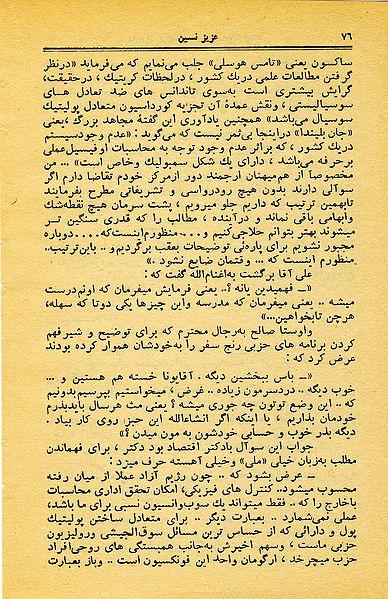 ۷۶
عزیز نسین
ساکسون یعنی «تامس هوسلی» جلب می‌نمایم که می‌فرماید «درنظر
گرفتن مطالعات علمی دریك کشور ، درلحظات کریتیك ، درحقیقت،
گرایش بیشتری است به‌سوی تاندانس های ضد تعادل های
سوسیالیستی ، ونقش عمدهٔ آن تجزیه کورداسیون متعادل پولیتیك
سوسیال می‌باشد» همچنین یادآوری این گفتهٔ مجاهد بزرگ ،یعنی
«جان بلیندا» دراینجا بی‌ثمر نیست که می‌گوید : «عدم وجودسیستم
دریك کشور ، که براثر عدم وجود توجه به محاسبات اوفیسیل‌عملی
برحرفه می‌باشد ، دارای یك شکل سمبولیك وخاص است» ... من
مخصوصا از هم‌میهنان ارجمند دور ازمرکز خودم تقاضا دارم اگر
سوآلی دارند بدون هیچ رودرواسی و تشریفاتی مطرح بفرمایند
تابهمین ترتیب که داریم جلو میرویم ، پشت سرمان هیچ نقطه‌شك
وابهامی باقی نماند و درآینده ، مطالب را که قدری سنگین تـر
میشوند بهتر بتوانم حلاجی‌کنیم و ...منظورم‌اینست‌که....دوباره
مجبور نشویم برای پاره‌ئی توضیحات بعقب برگردیم و.. باین‌ترتیب..
منظورم اینست که ... وقتمان ضایع نشود .»
علی آقا برگشت به‌اغنام‌الله گفت که :
«ــ فهمیدین یانه ؟.. یعنی فرمایش میفرمان که اونم‌درست
میشه .. یعنی میفرمان که مدرسه واین چیزها یکی دوتا که سهله،
هرچن تابخواهین...»
واوستا صالح به‌رجال محترم که برای توضیح و شیرفهم
کردن برنامه های حزبی رنج سفر را به‌خودشان هموار کرده بودند
عرض کرد که :
«ــ باس ببخشین دیگه . آقایونا خسته هم هستین و ...
خوب دیگه .. دردسرمون زیاده .. غرض ، میخواستیم بپرسیم‌بدونیم
که .. این وضع توتون چه جوری میشه ؟ یعنی مث هرسال بایدبدرم
خودمان بذاریم ، یا اینکه اگر انشاءالله این حیز روی کار بیاد .
دیگه بدر خوب و حسابی خودشون به مون میدن ؟»
جواب این سوآل بادکتر اقتصاد بود دکتر ، برای فهماندن
مطلب به‌زبان خیلی «ملی» وخیلی آهسته حرف میزد :
ــ عرض بشود که .. چون رژیم آزاد عملا از میان رفته
محسوب میشود.. کنترل های فیزیکی، امکان تحقق اداری محاسبات
باخارج را که .. فقط میتواند یك سوب‌وانسیون نسبی برای ما باشد،
عملی نمی‌شمارد .. بعبارت دیگر .. برای متعادل ساختن پولیتیك
پول و دارائی که از حساس ترین مسائل سوق‌الجیشی ورولیزیون
حزبی ماست ، وسهم اخیرش به‌جانب همبستگی های روحی‌افراد
حزب میچرخد ، ارگومان واحد این فونکسیون است .. وباز بعبارت